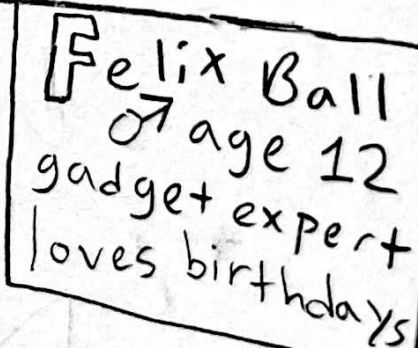 Felix Ball
♂ age 12
gadget expert
loves birthdays